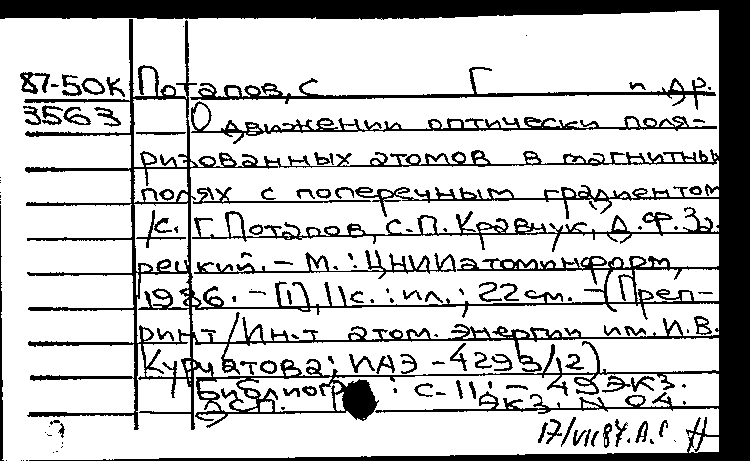 87-50К Потапов, С Г и др.
3563 О движении оптически поля-
ризованных атомов в магнитных
полях с поперечным градиентом
/С. Г. Потапов, С.П. Кравчук, Д.Ф. За-
рецкий. - М. : ЦНИИатоминформ,
1986. - [1], 11 с. : ил. ; 22 см. - (Преп-
ринт / Ин-т атом. энергии им. И.В.
Курчатова; ИАЭ - 4293/12).
Библиогр : с. 11. - 49 экз.
ДСП. экз. N 04.
9 17/VII 87.